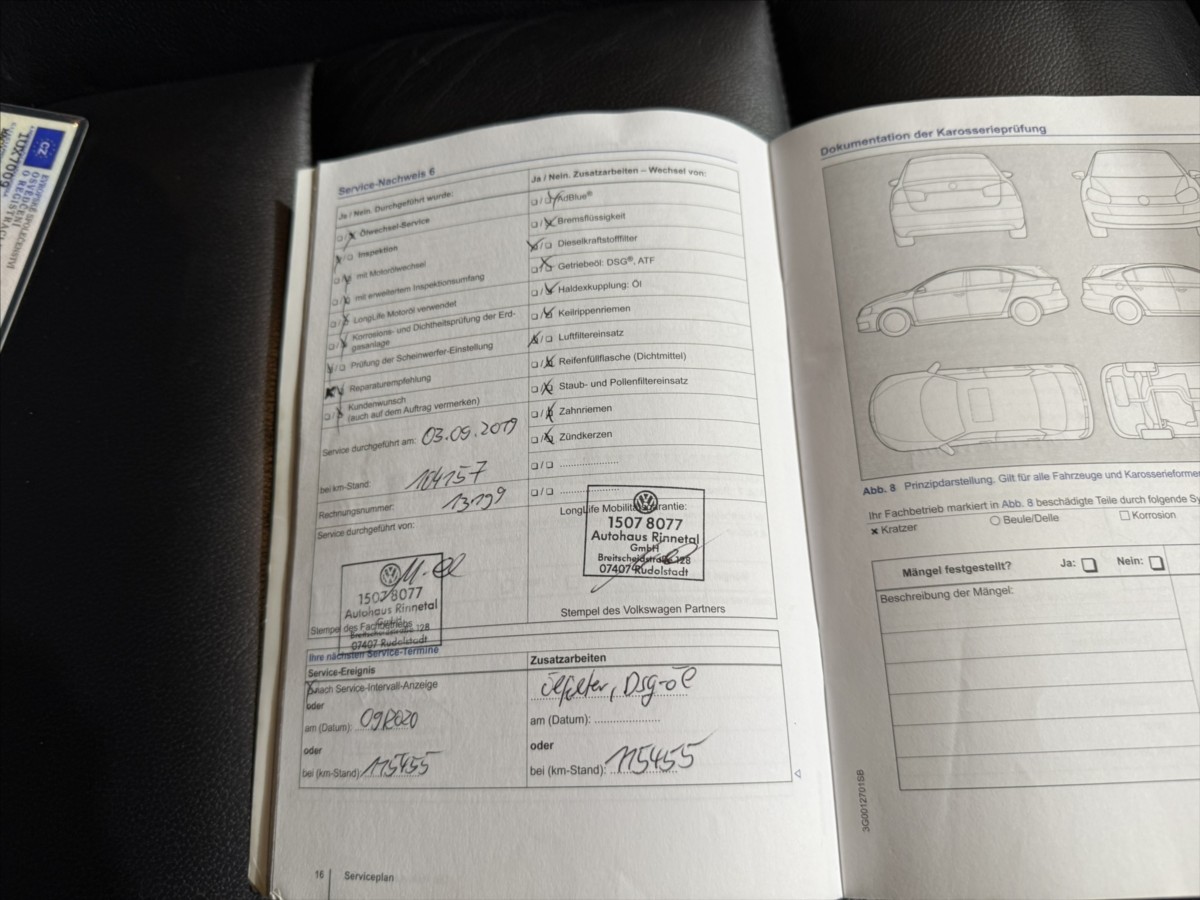 CZ
OSVĚDČENÍ
O REGISTRACI
Service-Nachweis 6
Ja / Nein. Durchgeführt wurde:
Ölwechsel-Service
Inspektion
mit Motorölwechsel
mit erweitertem Inspektionsumfang
LongLife Motoröl verwendet
Korrosions- und Dichtheitsprüfung der Erd-
gasanlage
Prüfung der Scheinwerfer-Einstellung
Reparaturempfehlung
Kundenwunsch
(auch auf dem Auftrag vermerken)
Service durchgeführt am: 03.09.2019
bei km-Stand: 104157
Rechnungsnummer: 13199
Service durchgeführt von:
1507 8077
Autohaus Rinnetal
GmbH
Breitscheidstraße 128
07407 Rudolstadt
Stempel des Fachbetriebs
Ja / Nein. Zusatzarbeiten – Wechsel von:
AdBlue®
Bremsflüssigkeit
Dieselkraftstofffilter
Getriebeöl: DSG®, ATF
Haldexkupplung: Öl
Keilrippenriemen
Luftfiltereinsatz
Reifenfüllflasche (Dichtmittel)
Staub- und Pollenfiltereinsatz
Zahnriemen
Zündkerzen
LongLife Mobilitätsgarantie:
1507 8077
Autohaus Rinnetal
GmbH
Breitscheidstraße 128
07407 Rudolstadt
Stempel des Volkswagen Partners
Ihre nächsten Service-Termine
Service-Ereignis
nach Service-Intervall-Anzeige
oder
am (Datum): 09/2020
oder
bei (km-Stand): 115455
Zusatzarbeiten
Ölfilter, Dsg-öl
am (Datum):
oder
bei (km-Stand): 115455
16 Serviceplan
Dokumentation der Karosserieprüfung
Abb. 8 Prinzipdarstellung. Gilt für alle Fahrzeuge und Karosserieformen
Ihr Fachbetrieb markiert in Abb. 8 beschädigte Teile durch folgende Sy
Kratzer
Beule/Delle
Korrosion
Mängel festgestellt? Ja: Nein:
Beschreibung der Mängel:
3G0012701SB